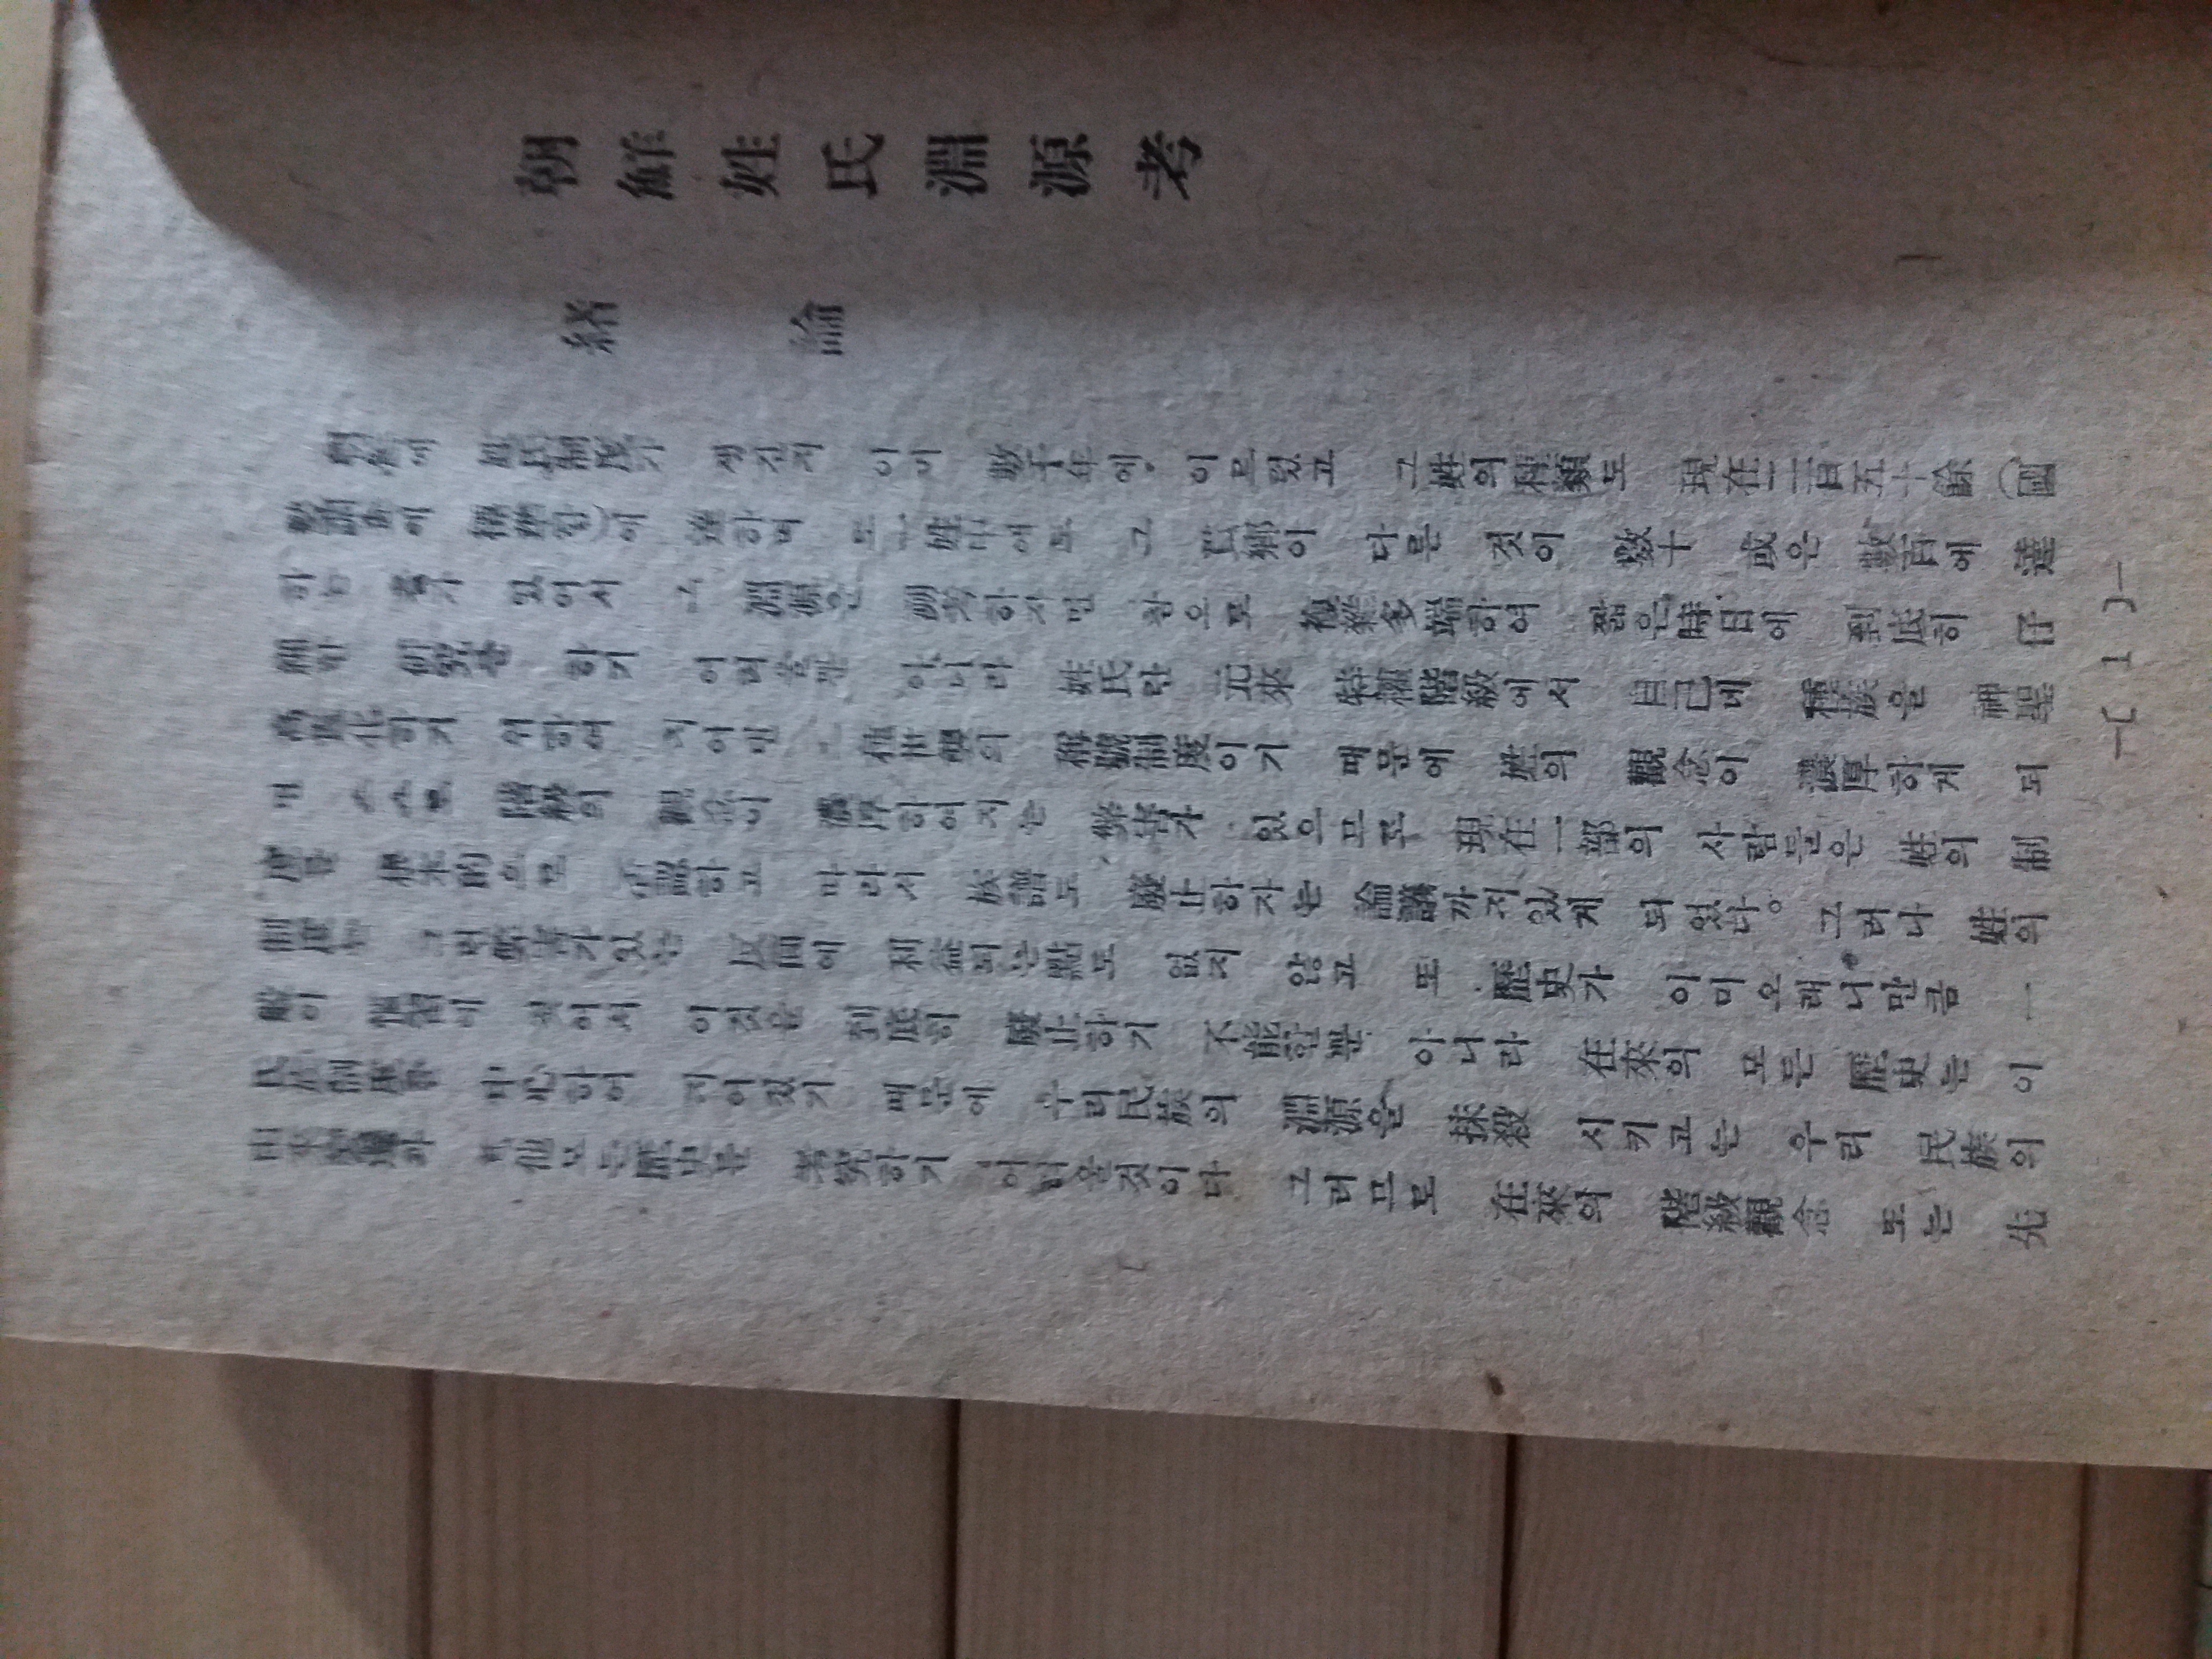 朝鮮姓氏淵源考
緖論
朝鮮에 姓氏制度가 생긴지 이미 數千年에 이르렀고 그姓의種類도 現在二百五十餘(國
에 達하며 또一姓나에도 그 氏鄕이 다른 것이 數十 或은 數百에 達
하는 수가 있어서 그 淵源을 하자면 참으로 複雜多端하여 짧은時日에 到底히 仔
細한 硏究를 하기 어려울뿐 아니라 姓氏란 元來 特權階級에서 自己네 種族을 神聖
하기 위하여 지어낸 의 稱號制度이기 때문에 姓의 觀念이 濃厚하게 되
면 스스로 階級的 觀念이 濃厚하여지는 弊害가 있으므로 現在一部의 사람들은 姓의 制
度를 根本的으로 否認하고 따라서 族譜도 廢止하자는 論議까지있게 되었다。그러나 姓의
制度는 그런弊害가있는 反面에 利益되는點도 없지 않고 또 歷史가 이미오래니만큼 一
이 되어서 이것을 到底히 廢止하기 不能할뿐 아니라 在來의 모든 歷史는 이
氏族制度를 하여 되어있기 때문에 우리民族의 淵源을 抹殺 시키고는 우리 民族의
其他모든歷史를 考究하기 어려운것이다 그러므로 在來의 階級觀念 또는 先
—〔 1 〕—